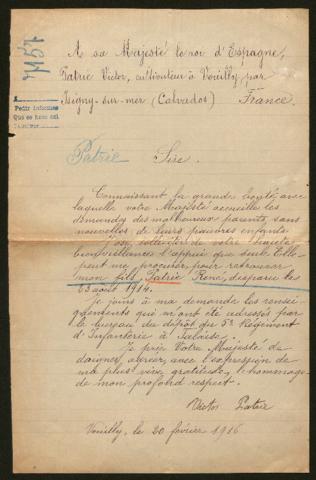 A sa Majesté le roi d'Espagne,
Patrie Victor, cultivateur à Vouilly, par
Isigny-sur-mer (Calvados) France.
7457
Pedir informes
Que se han
Patrie Sire.
Connaissant la grande bonté avec
laquelle votre Majesté accueille les
demandes des malheureux parents sans
nouvelles de leurs pauvres enfants
J'ose solliciter de votre haute
bienveillance l'appui que seule Elle
peut me procurer pour retrouver
mon fils, Patrie René, disparu le
23 août 1914.
Je joins à ma demande les rensei-
gnements qui m'ont été adressés par
le bureau du dépôt du 5e Régiment
d'Infanterie à Falaise.
Je prie Votre Majesté de
daigner agréer, avec l'expression de
ma plus vive gratitude, l'hommage
de mon profond respect.
Victor Patrie
Vouilly, le 20 février 1916